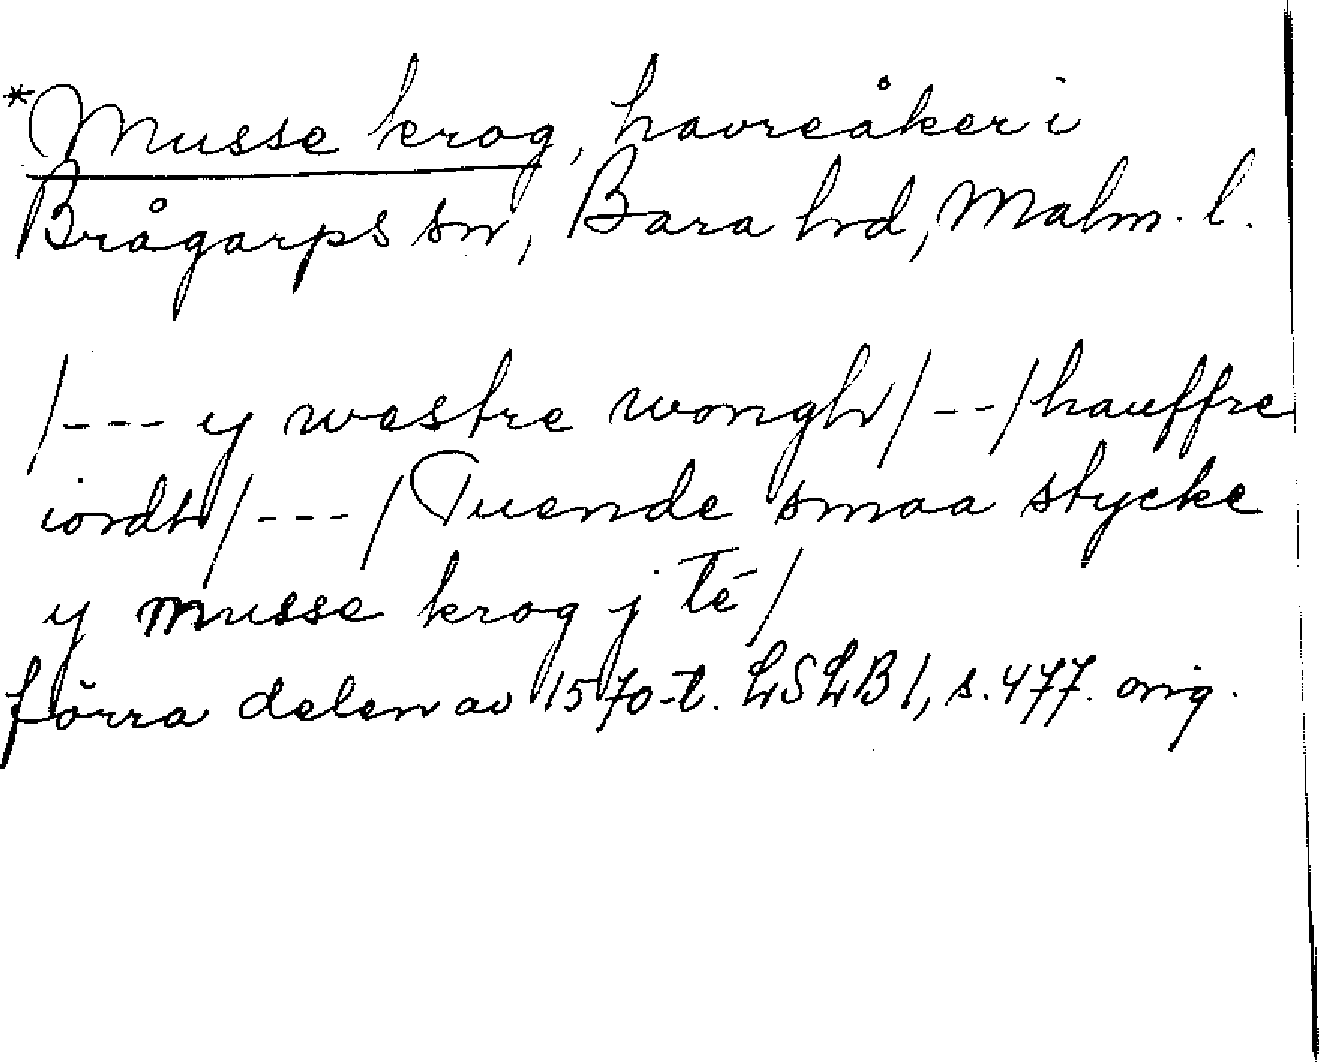 *Musse krog, havreåker i
Brågarps sn, Bara hd, Malm. l.
/--- y westre wongh/--/hauffre
iordh/---/Tuende smaa stycke
y musse krog j té/
förra delen av 1570-t. LSLB 1, s. 477. orig.